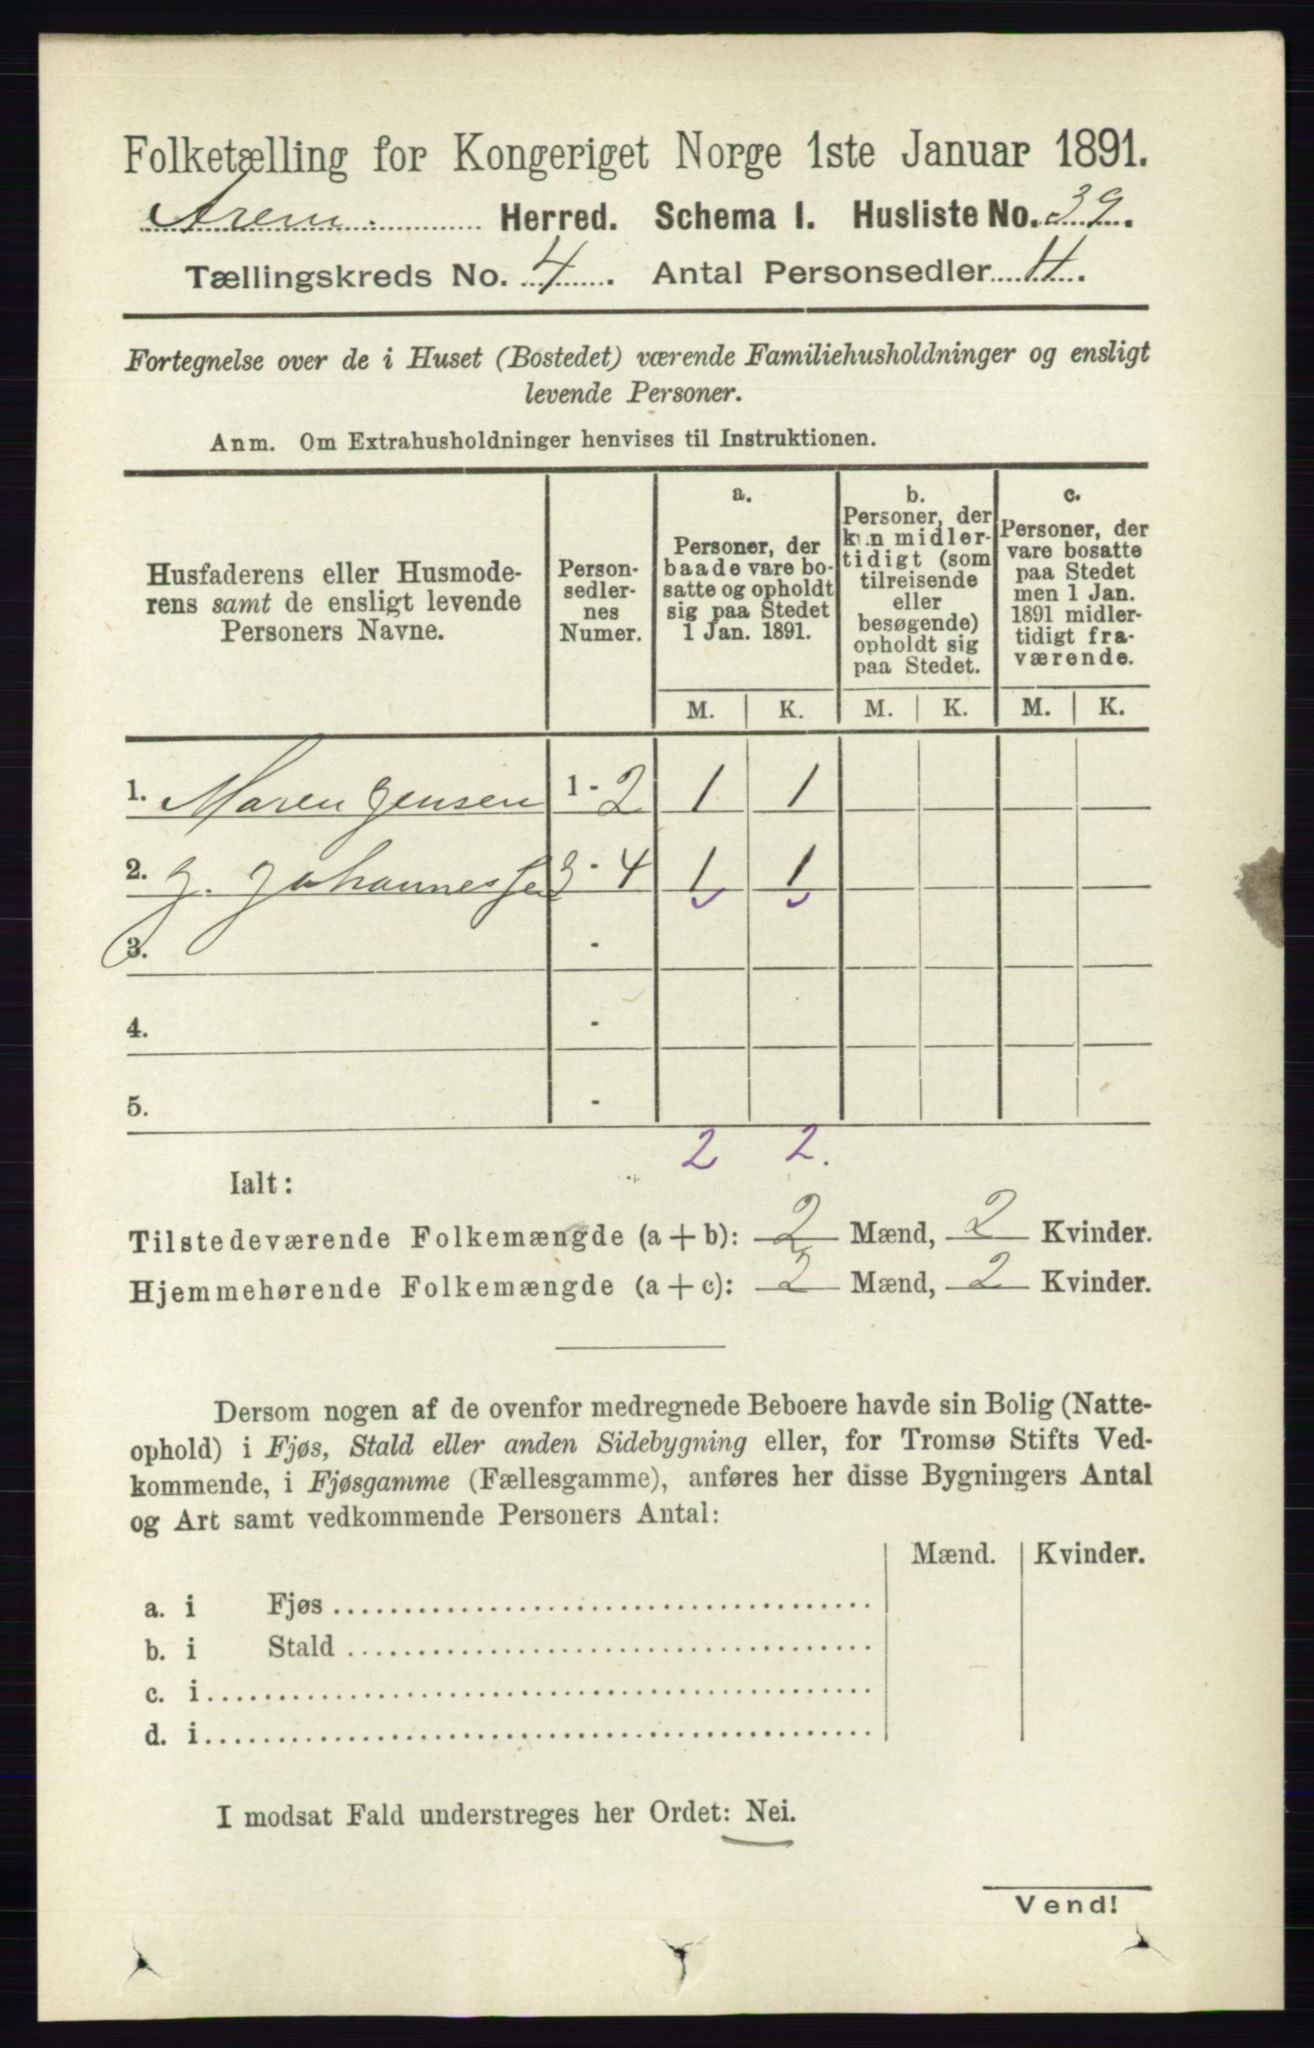 Folketælling for Kongeriget Norge 1ste Januar 1891.
Arem. Herred. Schema I. Husliste No. 39.
Tællingskreds No. 4. Antal Personsedler 4.
Fortegnelse over de i Huset (Bostedet) værende Familiehusholdninger og ensligt
levende Personer.
Anm. Om Extrahusholdninger henvises til Instruktionen.
Husfaderens eller Husmode-
rens samt de ensligt levende
Personers Navne.
Person-
sedler-
nes
Numer.
a.
Personer, der
baade vare bo-
satte og opholdt
sig paa Stedet
1 Jan. 1891.
b.
Personer, der
kun midler-
tidigt (som
tilreisende
eller
besøgende)
opholdt sig
paa Stedet.
c.
Personer, der
vare bosatte
paa Stedet
men 1 Jan.
1891 midler-
tidigt fra-
værende.
M. K. M. K. M. K.
1. Maren Jensen 1 - 2 1 1
2. J. Johannessen 3 - 4 1 1
3. -
4. -
5. -
2 2.
Ialt:
Tilstedeværende Folkemængde (a + b): 2 Mænd, 2 Kvinder.
Hjemmehørende Folkemængde (a + c): 2 Mænd, 2 Kvinder.
Dersom nogen af de ovenfor medregnede Beboere havde sin Bolig (Natte-
ophold) i Fjøs, Stald eller anden Sidebygning eller, for Tromsø Stifts Ved-
kommende, i Fjøsgamme (Fællesgamme), anføres her disse Bygningers Antal
og Art samt vedkommende Personers Antal:
Mænd. Kvinder.
a. i Fjøs
b. i Stald
c. i
d. i
I modsat Fald understreges her Ordet: Nei.
Vend!